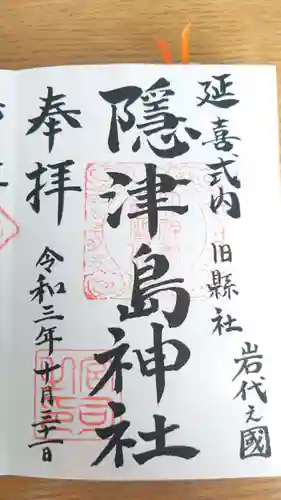 延喜式内
旧縣社
岩代之國
隱津島神社
奉拝
令和三年十月三十一日